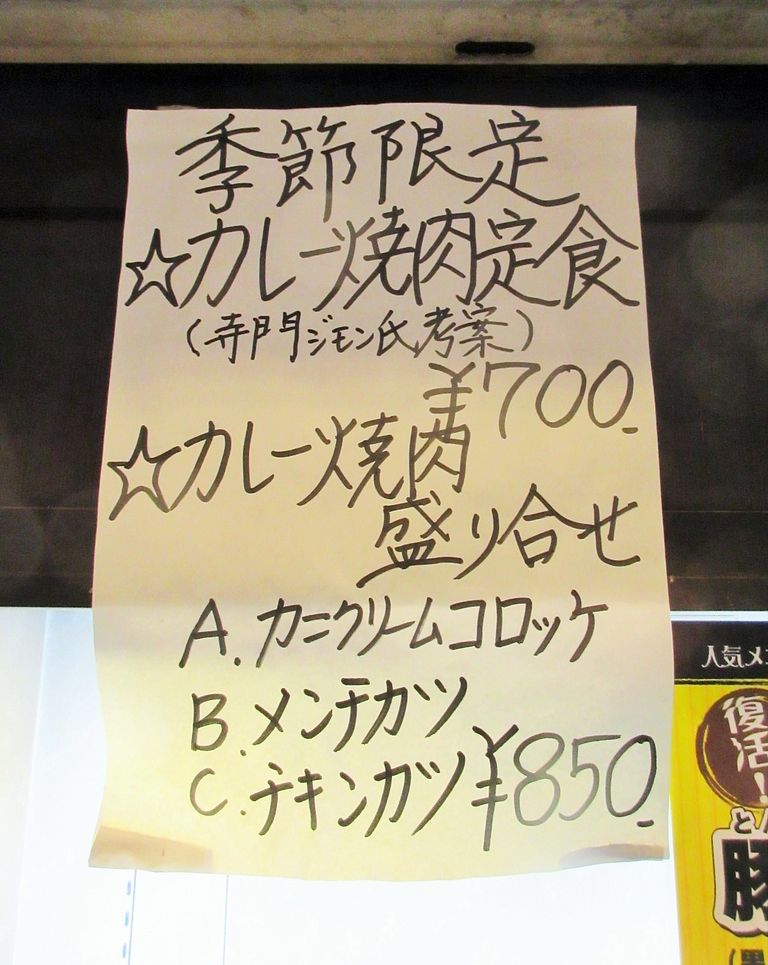 季節限定
☆カレー焼肉定食
(寺門ジモン氏考案)
¥700-
☆カレー焼肉
盛り合せ
A.カニクリームコロッケ
B.メンチカツ
C.チキンカツ ¥850-
人気メ
復活!
と
豚